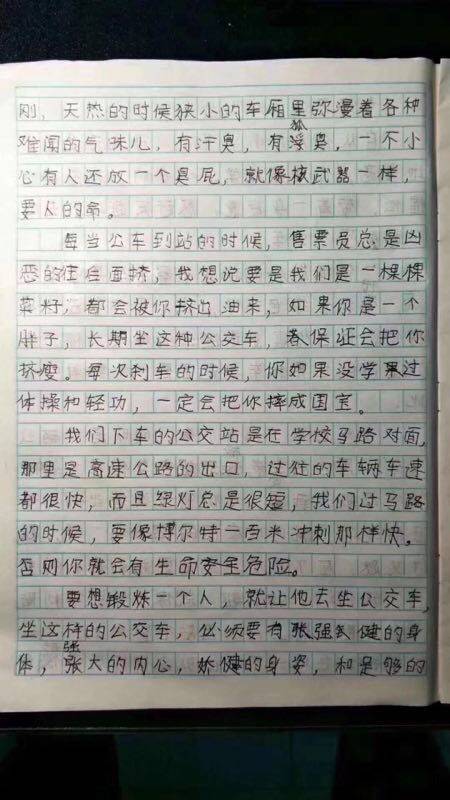 刚，天热的时候狭小的车厢里弥漫着各种
难闻的气味儿，有汗臭，有狐臭，一不小
心有人还放一个臭屁，就像核武器一样，
要人的命。
每当公车到站的时候，售票员总是凶
恶的往后面挤，我想说要是我们是一棵棵
菜籽，都会被你挤出油来，如果你是一个
胖子，长期坐这种公交车，春保证会把你
挤瘦。每次刹车的时候，你如果没学果过
体操和轻功，一定会把你摔成国宝。
我们下车的公交站是在学校马路对面，
那里是高速公路的出口，过往的车辆车速
都很快，而且绿灯总是很短，我们过马路
的时候，要像博尔特一百米冲刺那样快。
否则你就会有生命安全危险。
要想锻炼一个人，就让他去坐公交车，
坐这样的公交车，必须要有张强矢健的身
体，强大的内心，娇健的身姿，和足够的